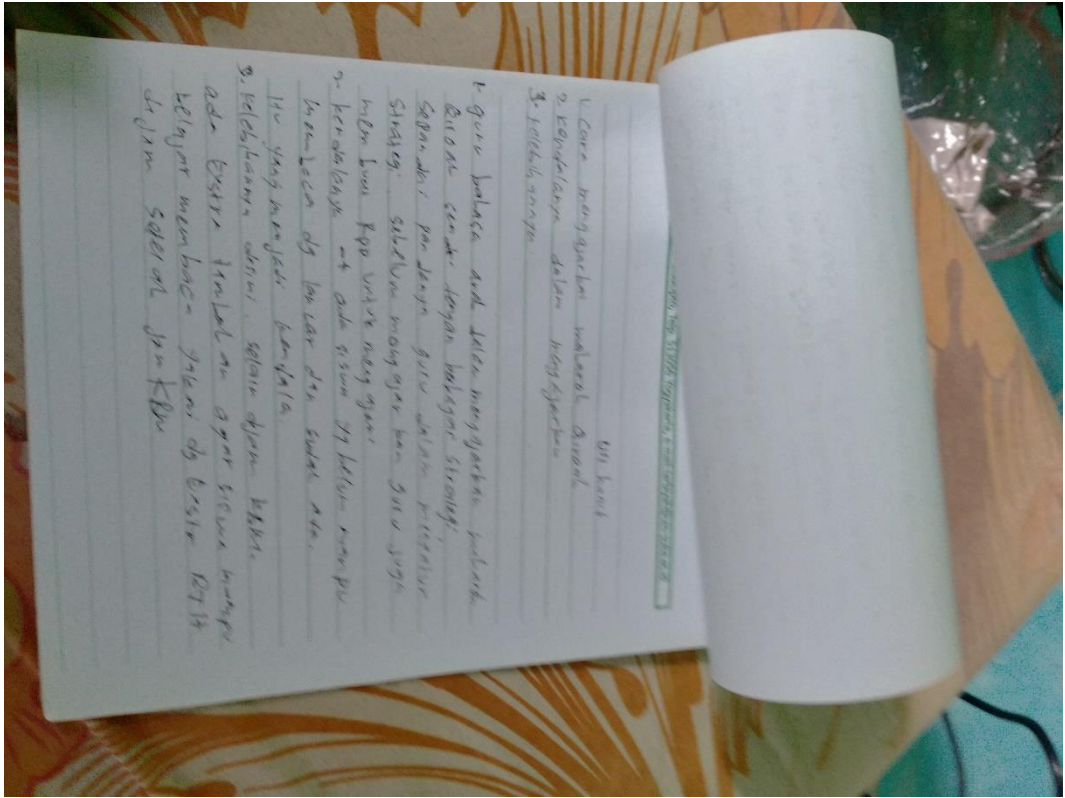 1. cara mengajarkai maharoh qiroah
2. kendalanya dalam mengajarkan
3. kelebihannya.
1. guru bahasa arab dalam mengajarkan maharoh
Qiroah sendiri dengan berbagai strategi
pandainya guru dalam mengatur
strategi. sebelum mengajarkan guru juga
membuat Rpp untuk mengajar.
2. kendalanya → ada siswa yg belum mampu
membaca dg lancar dan sudah ada.
itu yang menjadi kendala.
3. kelebihannya disini, selain dijam
ada Extra tambahan agar siswa mampu
belajar membaca yakni dg Extra
dijam setelah jam KBM